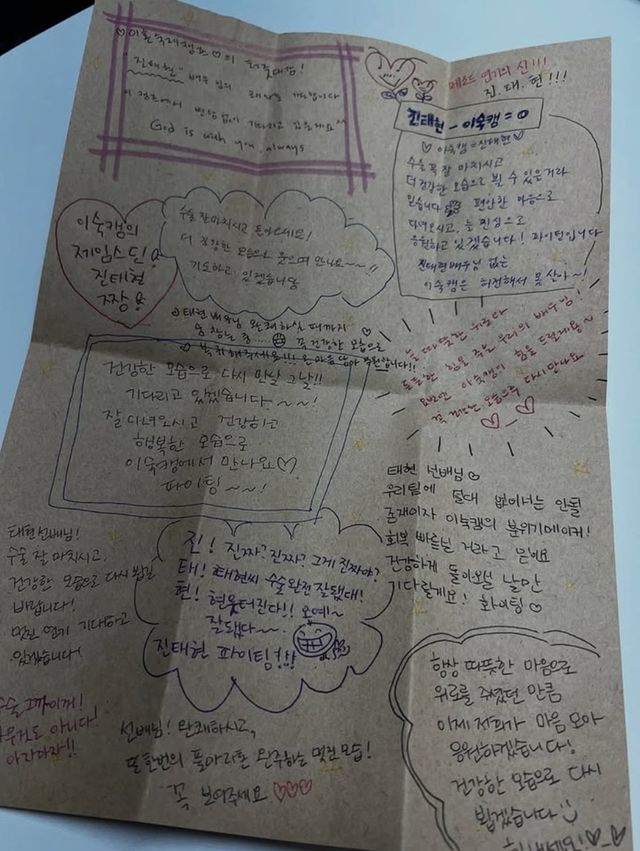 ♡이혼숙려캠프♡의
"진태현" 배우 님의
God is with you always
메소드 연기의 신!!!
진. 태. 현!!!
진태현 - 이숙캠 = 0
♡ 이숙캠=진태현♡
수술 꼭 잘 마치시고
더 건강한 모습으로 뵐 수 있을거라
믿습니다 편안한 마음으로
다녀오시고, 늘 진심으로
응원하고 있겠습니다! 파이팅입니다
진태현배우님 없는
이숙캠은 허전해서 못 산아~!
이숙캠의
제임스딘
진태현
짱
수술 잘마치시고 돌아오세요!
더 건강한 모습으로 웃으며 만나요~~!!
기도하고 있겠습니당
태현 배우님 완쾌하실 때까지
꼭 건강한 모습으로
복귀해주세요!!! 온 마음 담아 응원합니다!!
늘 따뜻한 위로와
든든한 힘을 주는 우리의 배우님!
이번엔 이숙캠이 힘을 드릴게요~
모습으로 다시만나요
건강한 모습으로 다시 만날 그날!!
기다리고 있겠습니다~~!
잘 다녀오시고 건강하고
행복한 모습으로
이숙캠에서 만나요♡
파이팅~~!
태현 선배님♡
우리팀에 절대 없어서는 안될
존재이자 이숙캠의 분위기메이커!
회복 빠르실 거라고 믿어요
건강하게 돌아오실 날만
기다릴게요! 화이팅♡
태현선배님!
수술 잘 마치시고,
건강한 모습으로 다시 뵙길
바랍니다!
멋진 연기 기대하고
있겠습니다!
진! 진짜? 진짜? 그게 진짜야?
태! 태현씨 수술완전잘됐대!
현! 현웃터진다!! 오예~
잘됐다~~.
진태현 파이팅!!!
수술 그까이꺼!
아무것도 아니다!
아자아자!!
선배님! 완쾌하시고,
또 한번의 풀마라톤 완주하는 멋진 모습!
꼭 보여주세요 ♡♡♡
항상 따뜻한 마음으로
위로를 주셨던 만큼
이제 저희가 마음 모아
응원하겠습니다!
건강한 모습으로 다시
뵙겠습니다 :)